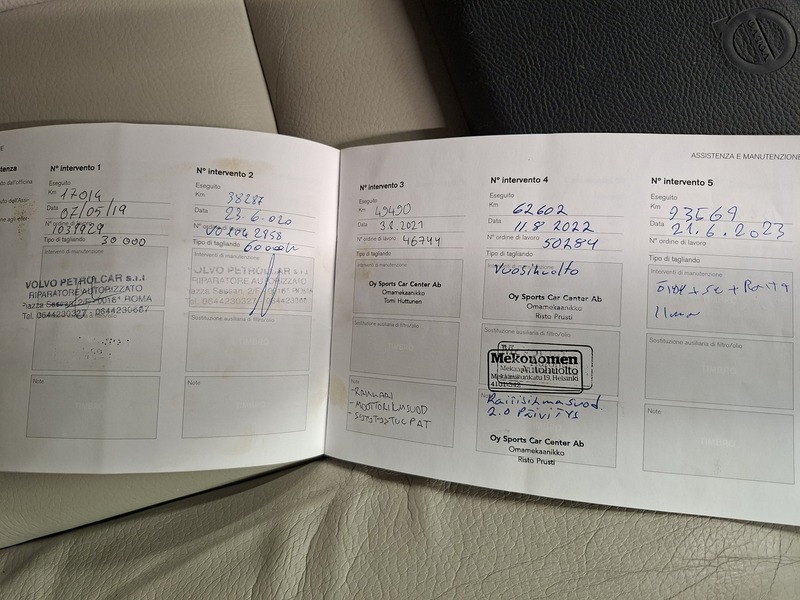 ASSISTENZA E MANUTENZIONE
N° intervento 1
Eseguito
Km 17014
Data 07/05/19
N° ordine di lavoro 1039929
Tipo di tagliando 30 000
Interventi di manutenzione
VOLVO PETROLCAR s.r.l
RIPARATORE AUTORIZZATO
Piazza Sassari, 2/F 00161 ROMA
Tel. 0644230327 - 0644230687
Note
N° intervento 2
Eseguito
Km 38287
Data 23.6.020
N° ordine di lavoro
Tipo di tagliando
Interventi di manutenzione
OLVO PETROLCAR s.r.l
RIPARATORE AUTORIZZATO
ROMA
Sostituzione ausiliaria di filtro/olio
Note
N° intervento 3
Eseguito
Km 49490
Data 3.8.2021
N° ordine di lavoro 46744
Tipo di tagliando
Interventi di manutenzione
Oy Sports Car Center Ab
Omamekaanikko
Tomi Huttunen
Sostituzione ausiliaria di filtro/olio
Note
- RAIKKARI
- MOOTTORILMSUOD
- SYTYTYSTULPAT
N° intervento 4
Eseguito
Km 62602
Data 11.8 2022
N° ordine di lavoro 50284
Tipo di tagliando
Interventi di manutenzione
Vuosihuolto
Oy Sports Car Center Ab
Omamekaanikko
Risto Prusti
Sostituzione ausiliaria di filtro/olio
Mekonomen
Autohuolto
Mekaanikonkatu 19, Helsinki
Raitisilmasuod.
2.0 PÄIVITYS
Oy Sports Car Center Ab
Omamekaanikko
Risto Prusti
N° intervento 5
Eseguito
Km 93569
Data 21.6.2023
N° ordine di lavoro
Tipo di tagliando
Interventi di manutenzione
Sostituzione ausiliaria di filtro/olio
Note